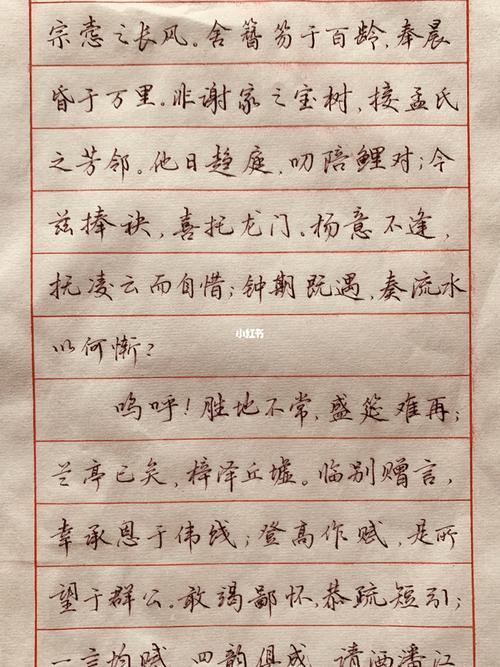 宗悫之长风。舍簪笏于百龄，奉晨
昏于万里。非谢家之宝树，接孟氏
之芳邻。他日趋庭，叨陪鲤对；今
兹捧袂，喜托龙门。杨意不逢，
抚凌云而自惜；钟期既遇，奏流水
以何惭？
小红书
呜呼！胜地不常，盛筵难再；
兰亭已矣，梓泽丘墟。临别赠言，
幸承恩于伟饯；登高作赋，是所
望于群公。敢竭鄙怀，恭疏短引；
一言均赋，四韵俱成。请洒潘江